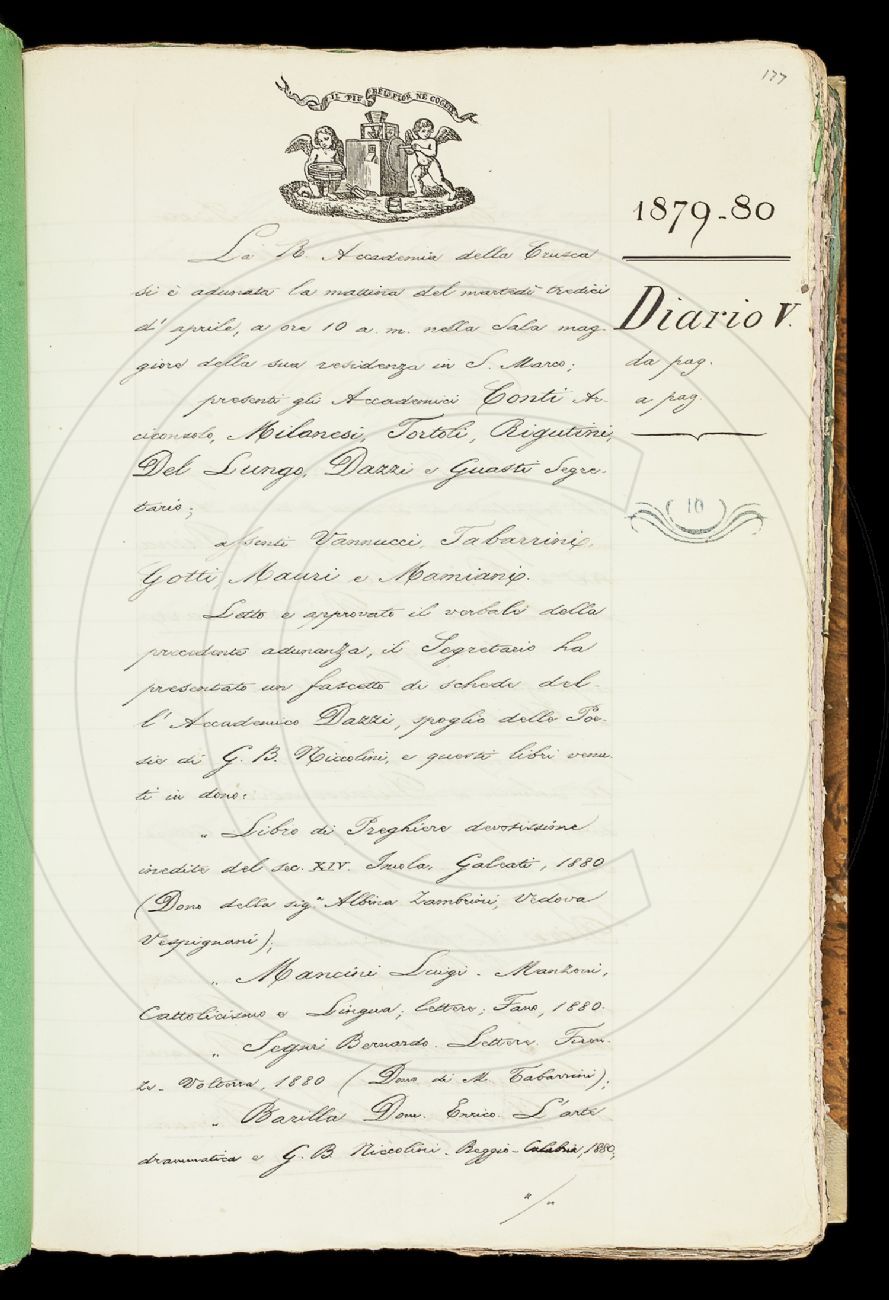 177
IL PIÙ BEL FIOR NE COGLIE
1879-80
Diario V.
da pag.
a pag.
10
La R. Accademia della Crusca
si è adunata la mattina del martedì tredici
d'aprile, a ore 10 a. m. nella Sala mag-
giore della sua residenza in S. Marco;
presenti gli Accademici Conti Ar-
ciconsolo, Milanesi, Tortoli, Rigutini,
Del Lungo, Dazzi e Guasti Segre-
tario;
assenti Vannucci, Tabarrini,
Gotti, Mauri e Mamiani.
Letto e approvato il verbale della
precedente adunanza, il Segretario ha
presentato un fascetto di schede del-
l'Accademico Dazzi, spoglio delle Poe-
sie di G. B. Niccolini, e questi libri venu-
ti in dono:
„ Libro di Preghiere devotissime
inedite del sec. XIV. Imola, Galeati, 1880
(Dono della sig.ª Albina Zambrini, Vedova
Vespignani);
„ Mancini Luigi. Manzoni,
Cattolicismo e Lingua; lettere; Fano, 1880.
„ Segni Bernardo. Lettere. Firen-
ze-Volterra, 1880 (Dono di M. Tabarrini);
„ Barilla Dom. Enrico. L'arte
drammatica e G. B. Niccolini. Reggio-Calabria, 1880;
"/"